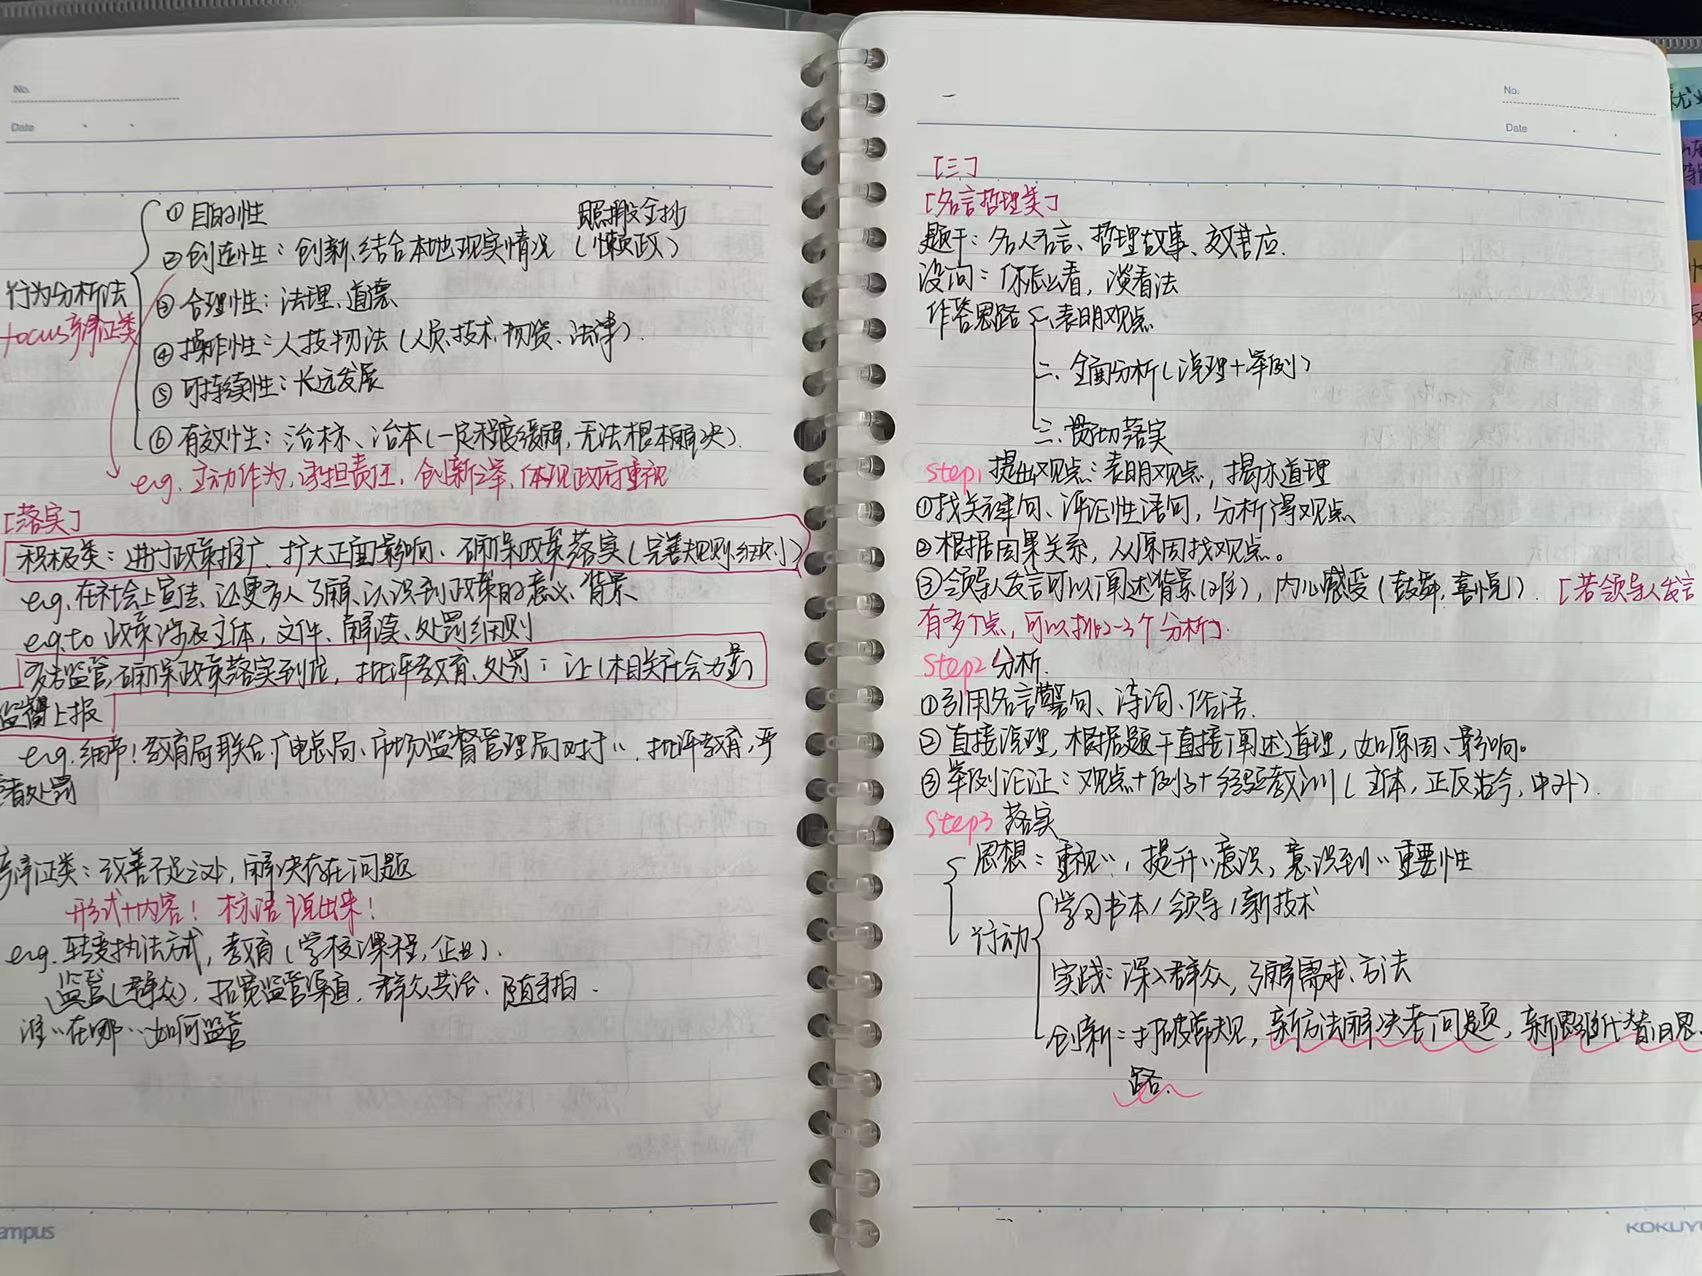 No.
Date
① 目的性
照搬全抄
② 创造性：创新，结合本地现实情况（懒政）
行为分析法
③ 合理性：法理、道德
focus辩证类
④ 操作性：人技物法（人员、技术、物资、法律）.
⑤ 可持续性：长远发展
⑥ 有效性：治标、治本（一定程度缓解，无法根本解决）.
eg. 主动作为，承担责任，创新之举，体现政府重视
[落实]
积极类：进行政策推广、扩大正面影响、确保政策落实（完善规则细则）
eg. 在社会上宣传、让更多人了解、认识到政策的意义、背景
eg. to 政策涉及主体，文件、解读、处罚细则
监管，确保政策落实到位，批评教育、处罚；让（相关社会力量）
监督上报
eg. 细节！教育局联合广电总局、市场监督管理局对于‥，批评教育，严
者处罚
辩证类：改善不足之处，解决存在问题
形式+内容！标语说出来！
eg. 转变执法方式，教育（学校课程，企业）.
监管（群众），拓宽监管渠道，群众共治、随手拍.
谁‥在哪‥如何监管
ampus
No.
Date
[三]
[名言哲理类]
题干：名人名言、哲理故事、效应.
设问：你怎么看，谈看法
作答思路 一、表明观点
二、全面分析（说理+举例）
三、贯彻落实
step1 提出观点：表明观点，揭示道理
①找关键句、评论性语句，分析得观点
②根据因果关系，从原因找观点。
③领导人发言可以阐述背景（难），内心感受（鼓舞，喜悦）. [若领导人发言
有多个点，可以挑2-3个分析].
step2 分析.
①引用名言警句、诗词、俗语.
②直接说理，根据题干直接阐述道理，如原因、影响。
③举例论证：观点+例子+经验教训（主体，正反古今，中外）.
step3 落实
思想：重视‥，提升‥意识，意识到‥重要性
行动
学习书本/领导/新技术
实践：深入群众，了解需求、方法
创新：打破常规，新方法解决老问题，新思路代替旧思
路.
KOKUY